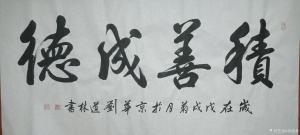 積善成德
歲在戊戌菊月於京華劉道林書